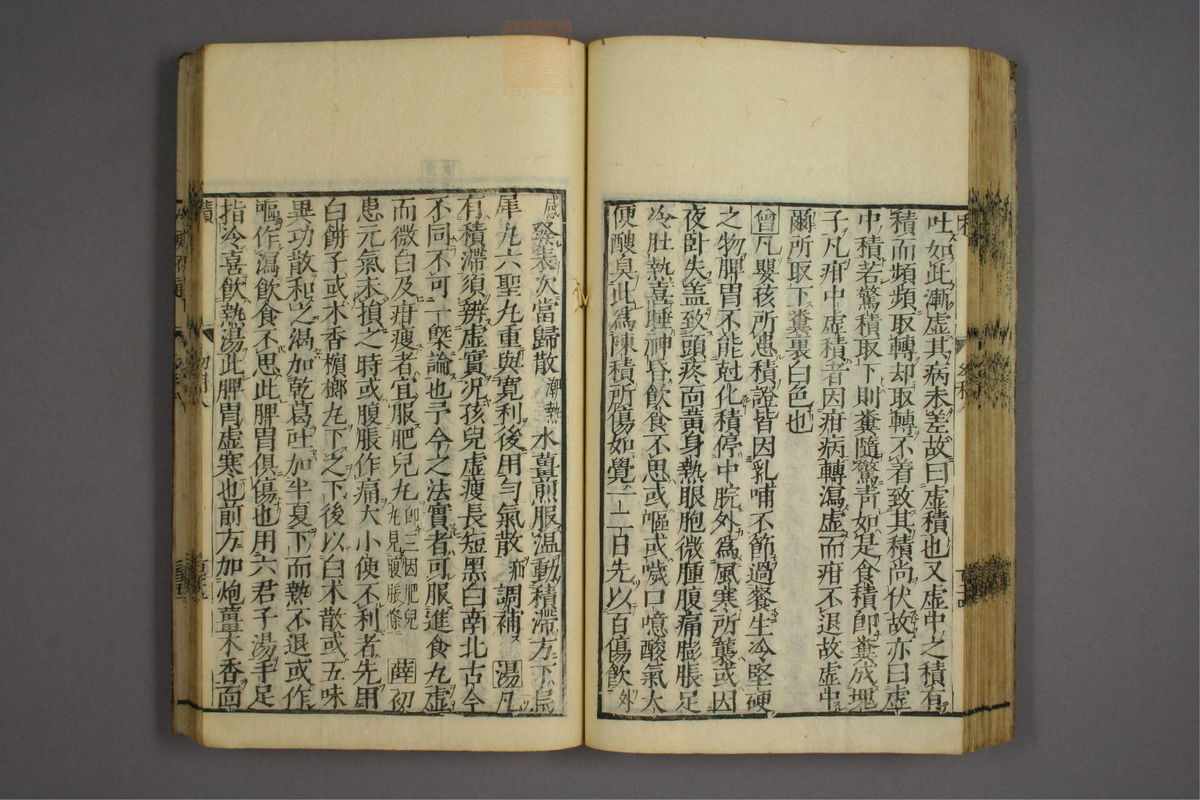 吐如此漸虚其病未差故曰虚積也又虚中之積有
積而頻頻取轉却取轉不着致其積尚伏故亦曰虚
中積若驚積取下則糞隨驚青如是食積卽糞成塊
子凡疳中虚積者因疳病轉瀉虚而疳不退故虚中
爾所取下糞裏白色也
曾凡嬰孩所患積證皆因乳哺不節過飡生冷堅硬
之物脾胃不能尅化積停中脘外爲風寒所襲或因
夜卧失盖致頭疼面黄身熱眼胞微腫腹痛膨脹足
冷肚熱喜睡神昏飲食不思或嘔或噦口噫酸氣大
便醙臭此爲陳積所傷如覺一二日先以百傷飲外
感發表次當歸散潮熱水薑煎服温動積滯方下烏
犀丸六聖丸重與寛利後用勻氣散疳調補湯凡
有積滯須辨虚實况孩兒虚瘦長短黑白南北古今
不同不可一槩論也予今之法實者可服進食丸虚
而微白及疳瘦者宜服肥兒丸卽三因肥兒丸見腹脹條薛初
患元氣未損之時或腹脹作痛大小便不利者先用
白餅子或木香檳榔丸下之下後以白术散或五味
異功散和之渴加乾葛吐加半夏下而熱不退或作
嘔作瀉飲食不思此脾胃俱傷也用六君子湯手足
指冷喜飲熱湯此脾胃虚寒也前方加炮薑木香面